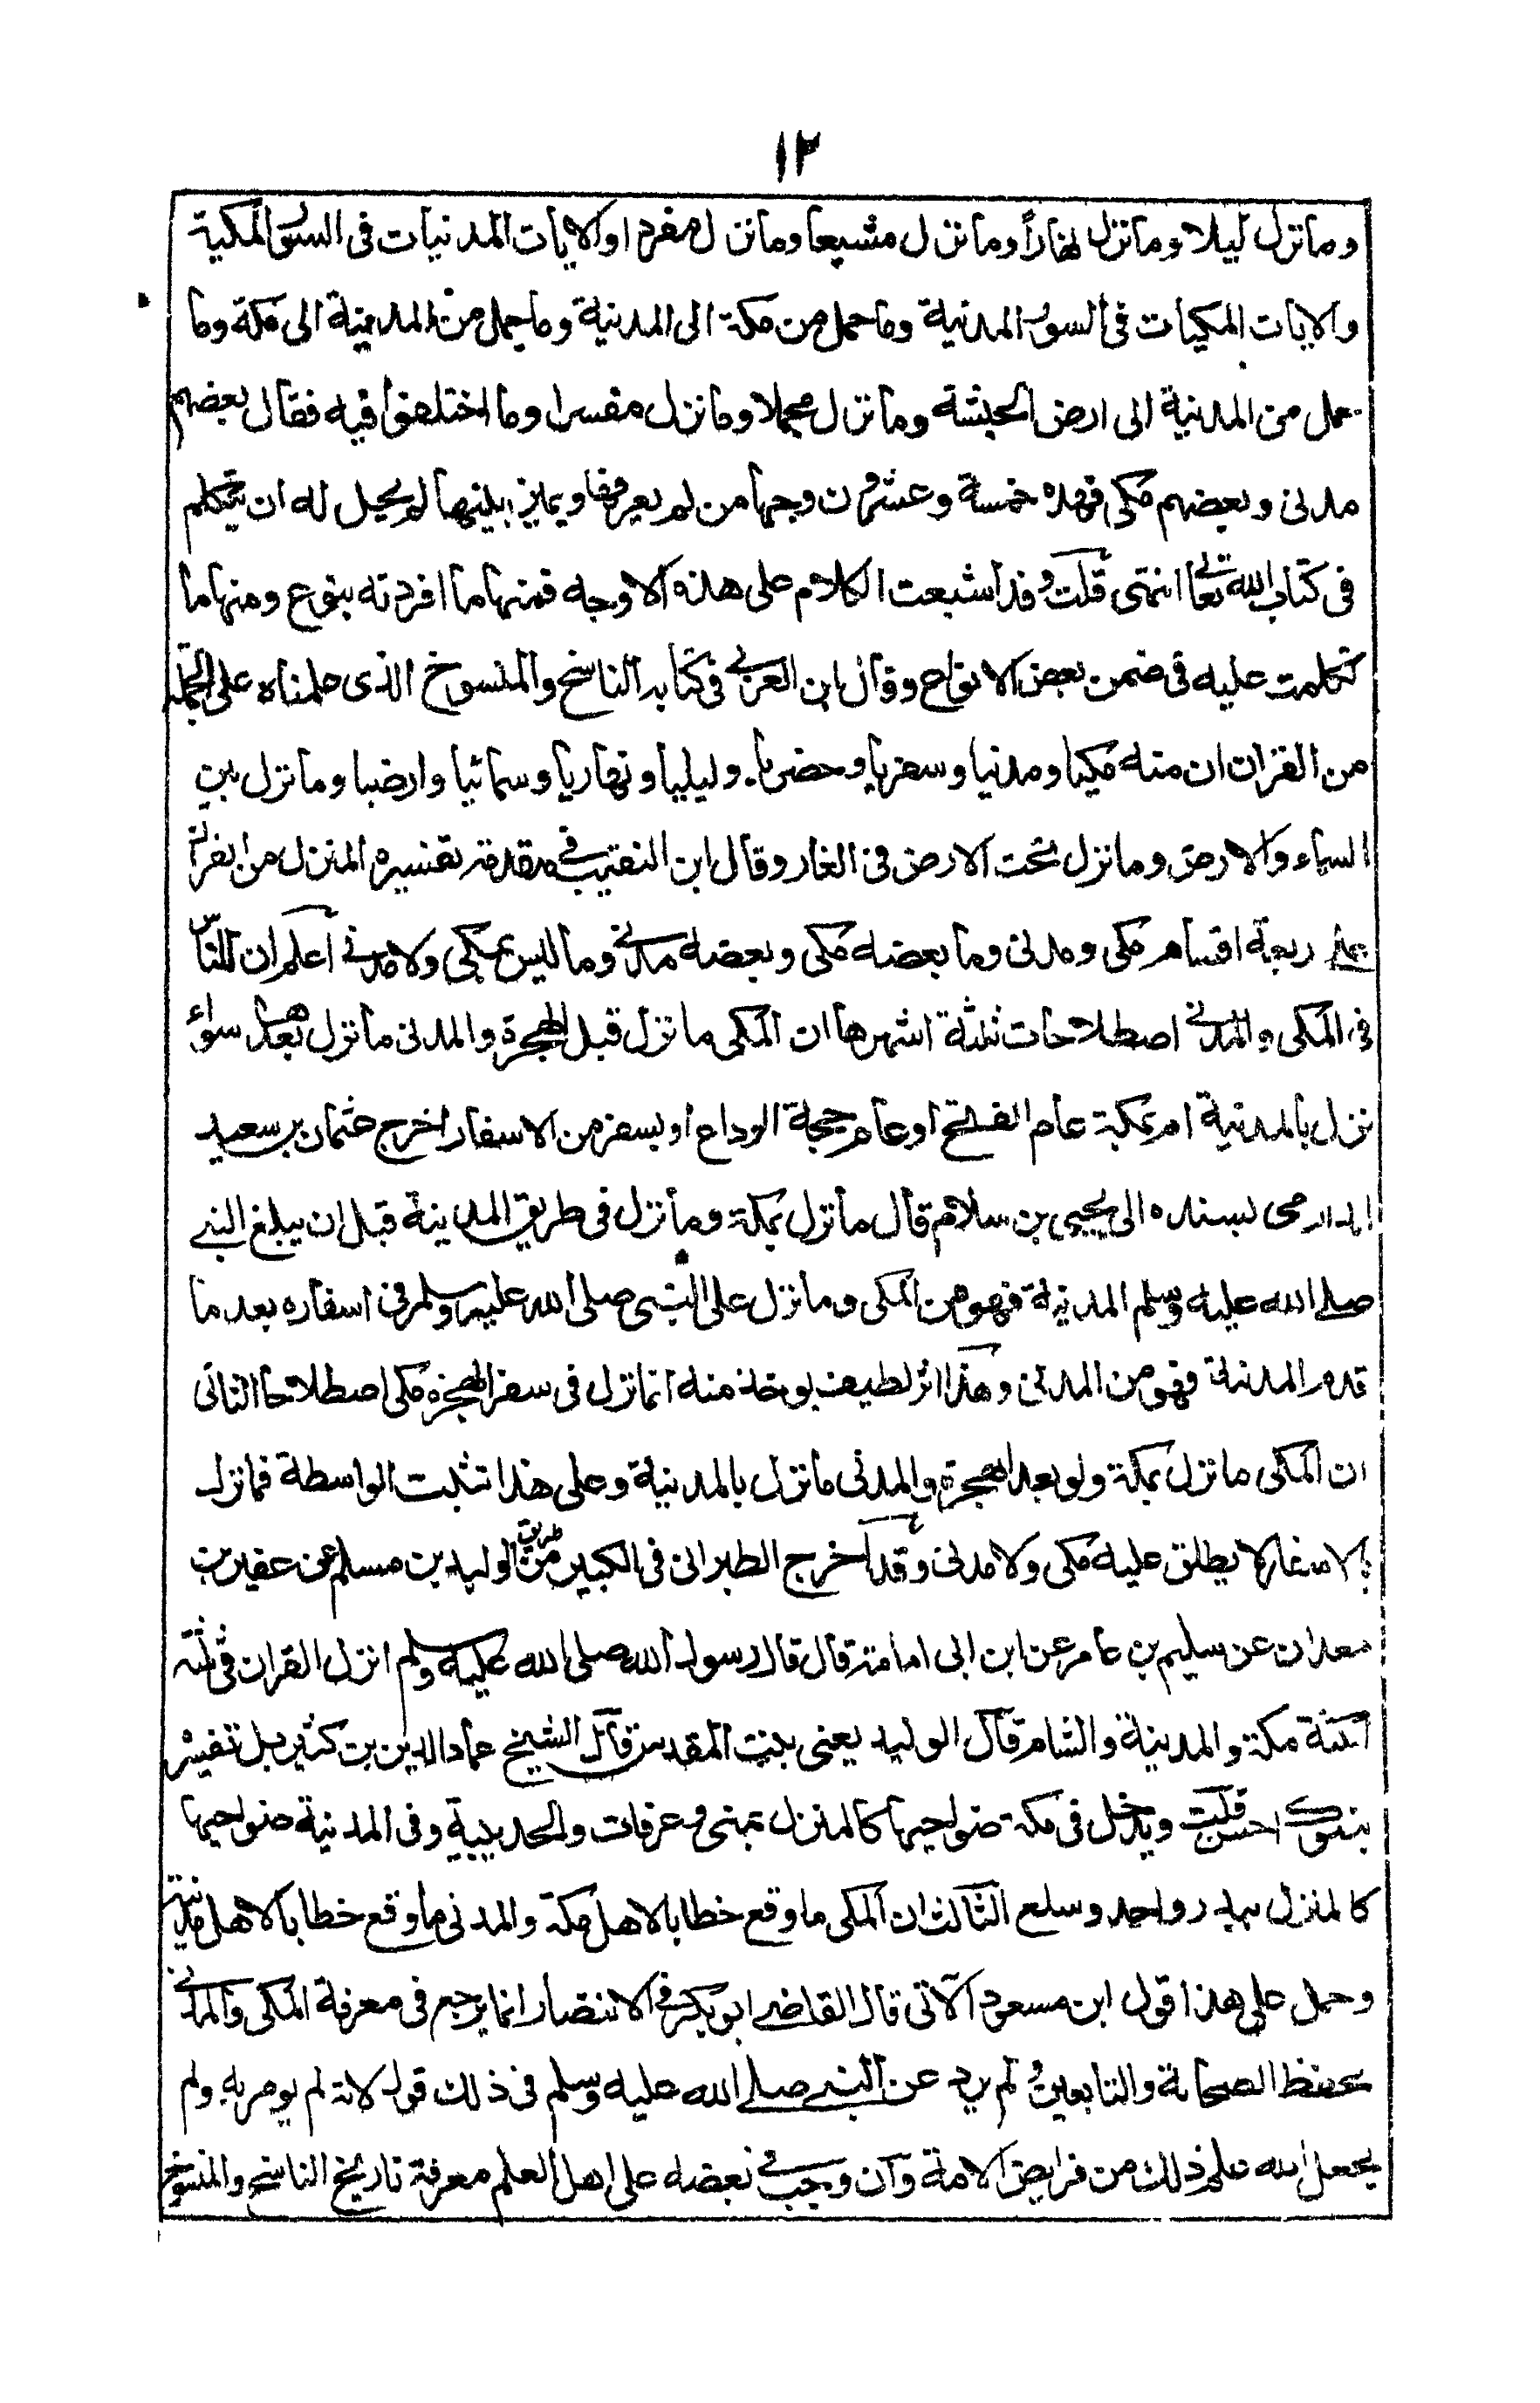 ١٢
وما نزل ليلا وما نزل نهاراً وما نزل مشيعا وما نزل مفردا والايات المدنيات فى السور المكية
والايات المكيات فى السور المدنية وما حمل من مكة الى المدنية وما حمل من المدينة الى مكة وما
حمل من المدنية الى ارض الحبشة وما نزل مجملا وما نزل مفسرا وما اختلفوا فيه فقال بعضهم
مدنى وبعضهم مكى فهذه خمسة وعشرون وجها من لم يعرفها ويمايز بينها لم يحل له ان يتكلم
فى كتاب الله تعالى انتهى قلت وقد اشبعت الكلام على هذه الاوجه فمنها ما افردته بنوع ومنها ما
تكلمت عليه فى ضمن بعض الانواع وقال ابن العربى فى كتابه الناسخ والمنسوخ الذى علمناه على الجملة
من القران ان منه مكيا ومدنيا وسفريا وحضريا وليليا ونهاريا وسمائيا وارضيا وما نزل بين
السماء والارض وما نزل تحت الارض فى الغار وقال ابن النقيب فى مقدمة تفسيره المنزل من القران
على اربعة اقسام مكى ومدنى وما بعضه مكى وبعضه مدنى وما ليس بمكى ولا مدنى اعلم ان للناس
فى المكى والمدنى اصطلاحات ثلثة اشهرها ان المكى ما نزل قبل الهجرة والمدنى ما نزل بعدها سواء
نزل بالمدنية ام بمكة عام الفتح او عام حجة الوداع او بسفر من الاسفار اخرج عثمان بن سعيد
الدارمى بسنده الى يحيى بن سلام قال ما نزل بمكة وما نزل فى طريق المدينة قبل ان يبلغ النبى
صلى الله عليه وسلم المدنية فهو من المكى وما نزل على النبى صلى الله عليه وسلم فى اسفاره بعد ما
قدم المدنية فهو من المدنى وهذا اثر لطيف يوخذ منه ان ما نزل فى سفر الهجرة مكى اصطلاحا الثانى
ان المكى ما نزل بمكة ولو بعد الهجرة والمدنى ما نزل بالمدنية وعلى هذا تثبت الواسطة فما نزل
بالاسفار لا يطلق عليه مكى ولا مدنى وقد اخرج الطبرانى فى الكبير من طريق الوليد بن مسلم عن عفير بن
معدان عن سليم بن عامر عن ابن ابى امامة قال قال رسول الله صلى الله عليه وسلم انزل القران فى ثلثة
امكنة مكة والمدنية والشام قال الوليد يعنى بيت المقدس قال الشيخ عماد الدين بن كثير بل تفسيره
بتبوك احسن قلت ويدخل فى مكة ضواحيها كالمنزل بمنى وعرفات والحديبية وفى المدنية ضواحيها
كالمنزل ببدر واحد وسلع الثالث ان المكى ما وقع خطابا لاهل مكة والمدنى ما وقع خطابا لاهل مدينة
وحمل على هذا قول ابن مسعود الآتى قال القاضى ابو بكر فى الانتصار انما يرجع فى معرفة المكى والمدنى
بحفظ الصحابة والتابعين ولم يرد عن النبى صلى الله عليه وسلم فى ذلك قول لانه لم يومر به ولم
يجعل الله علم ذلك من فرايض الامة وان وجب فى بعضه على اهل العلم معرفة تاريخ الناسخ والمنسوخ